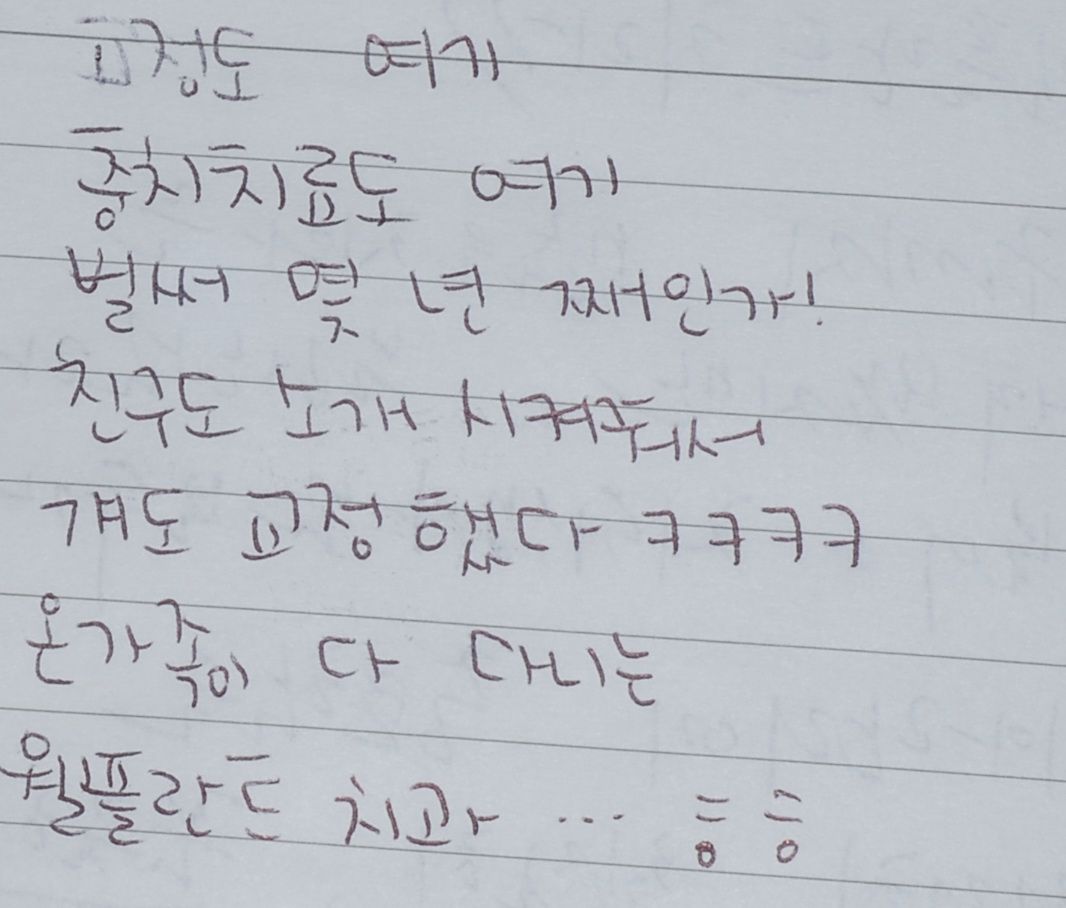 교정도 여기
충치치료도 여기
벌써 몇 년 째인가!
친구도 소개 시켜줘서
걔도 교정 했다 ㅋㅋㅋㅋ
온가족이 다 다니는
윌플란트 치과 ... ㅎㅎ